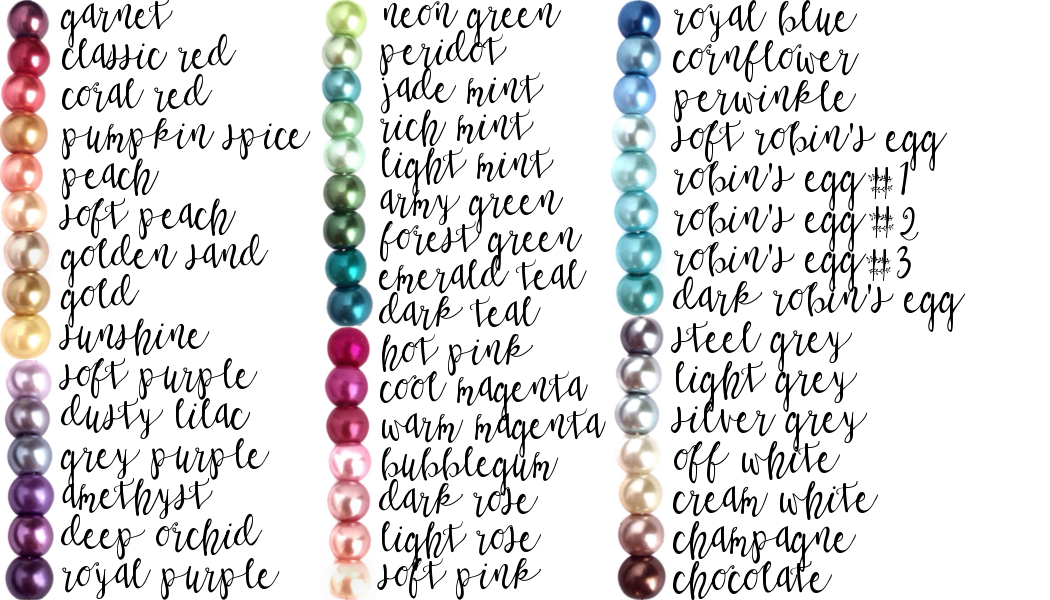 garnet
classic red
coral red
pumpkin spice
peach
soft peach
golden sand
gold
sunshine
soft purple
dusty lilac
grey purple
amethyst
deep orchid
royal purple
neon green
peridot
jade mint
rich mint
light mint
army green
forest green
emerald teal
dark teal
hot pink
cool magenta
warm magenta
bubblegum
dark rose
light rose
soft pink
royal blue
cornflower
perwinkle
soft robin's egg
robin's egg #1
robin's egg #2
robin's egg #3
dark robin's egg
steel grey
light grey
silver grey
off white
cream white
champagne
chocolate